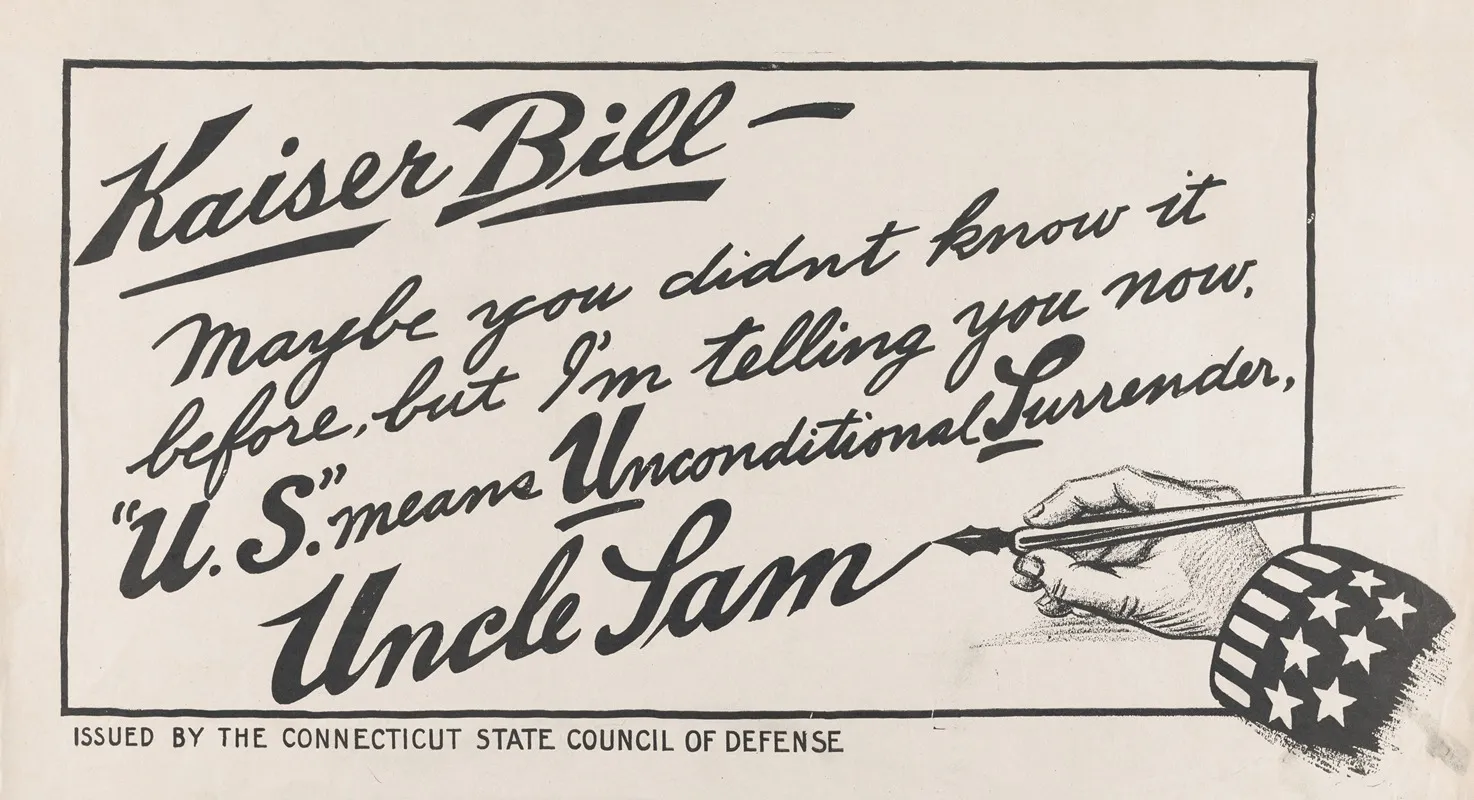 Kaiser Bill —
Maybe you didnt know it
before, but I'm telling you now,
"U. S." means Unconditional Surrender,
Uncle Sam
ISSUED BY THE CONNECTICUT STATE COUNCIL OF DEFENSE